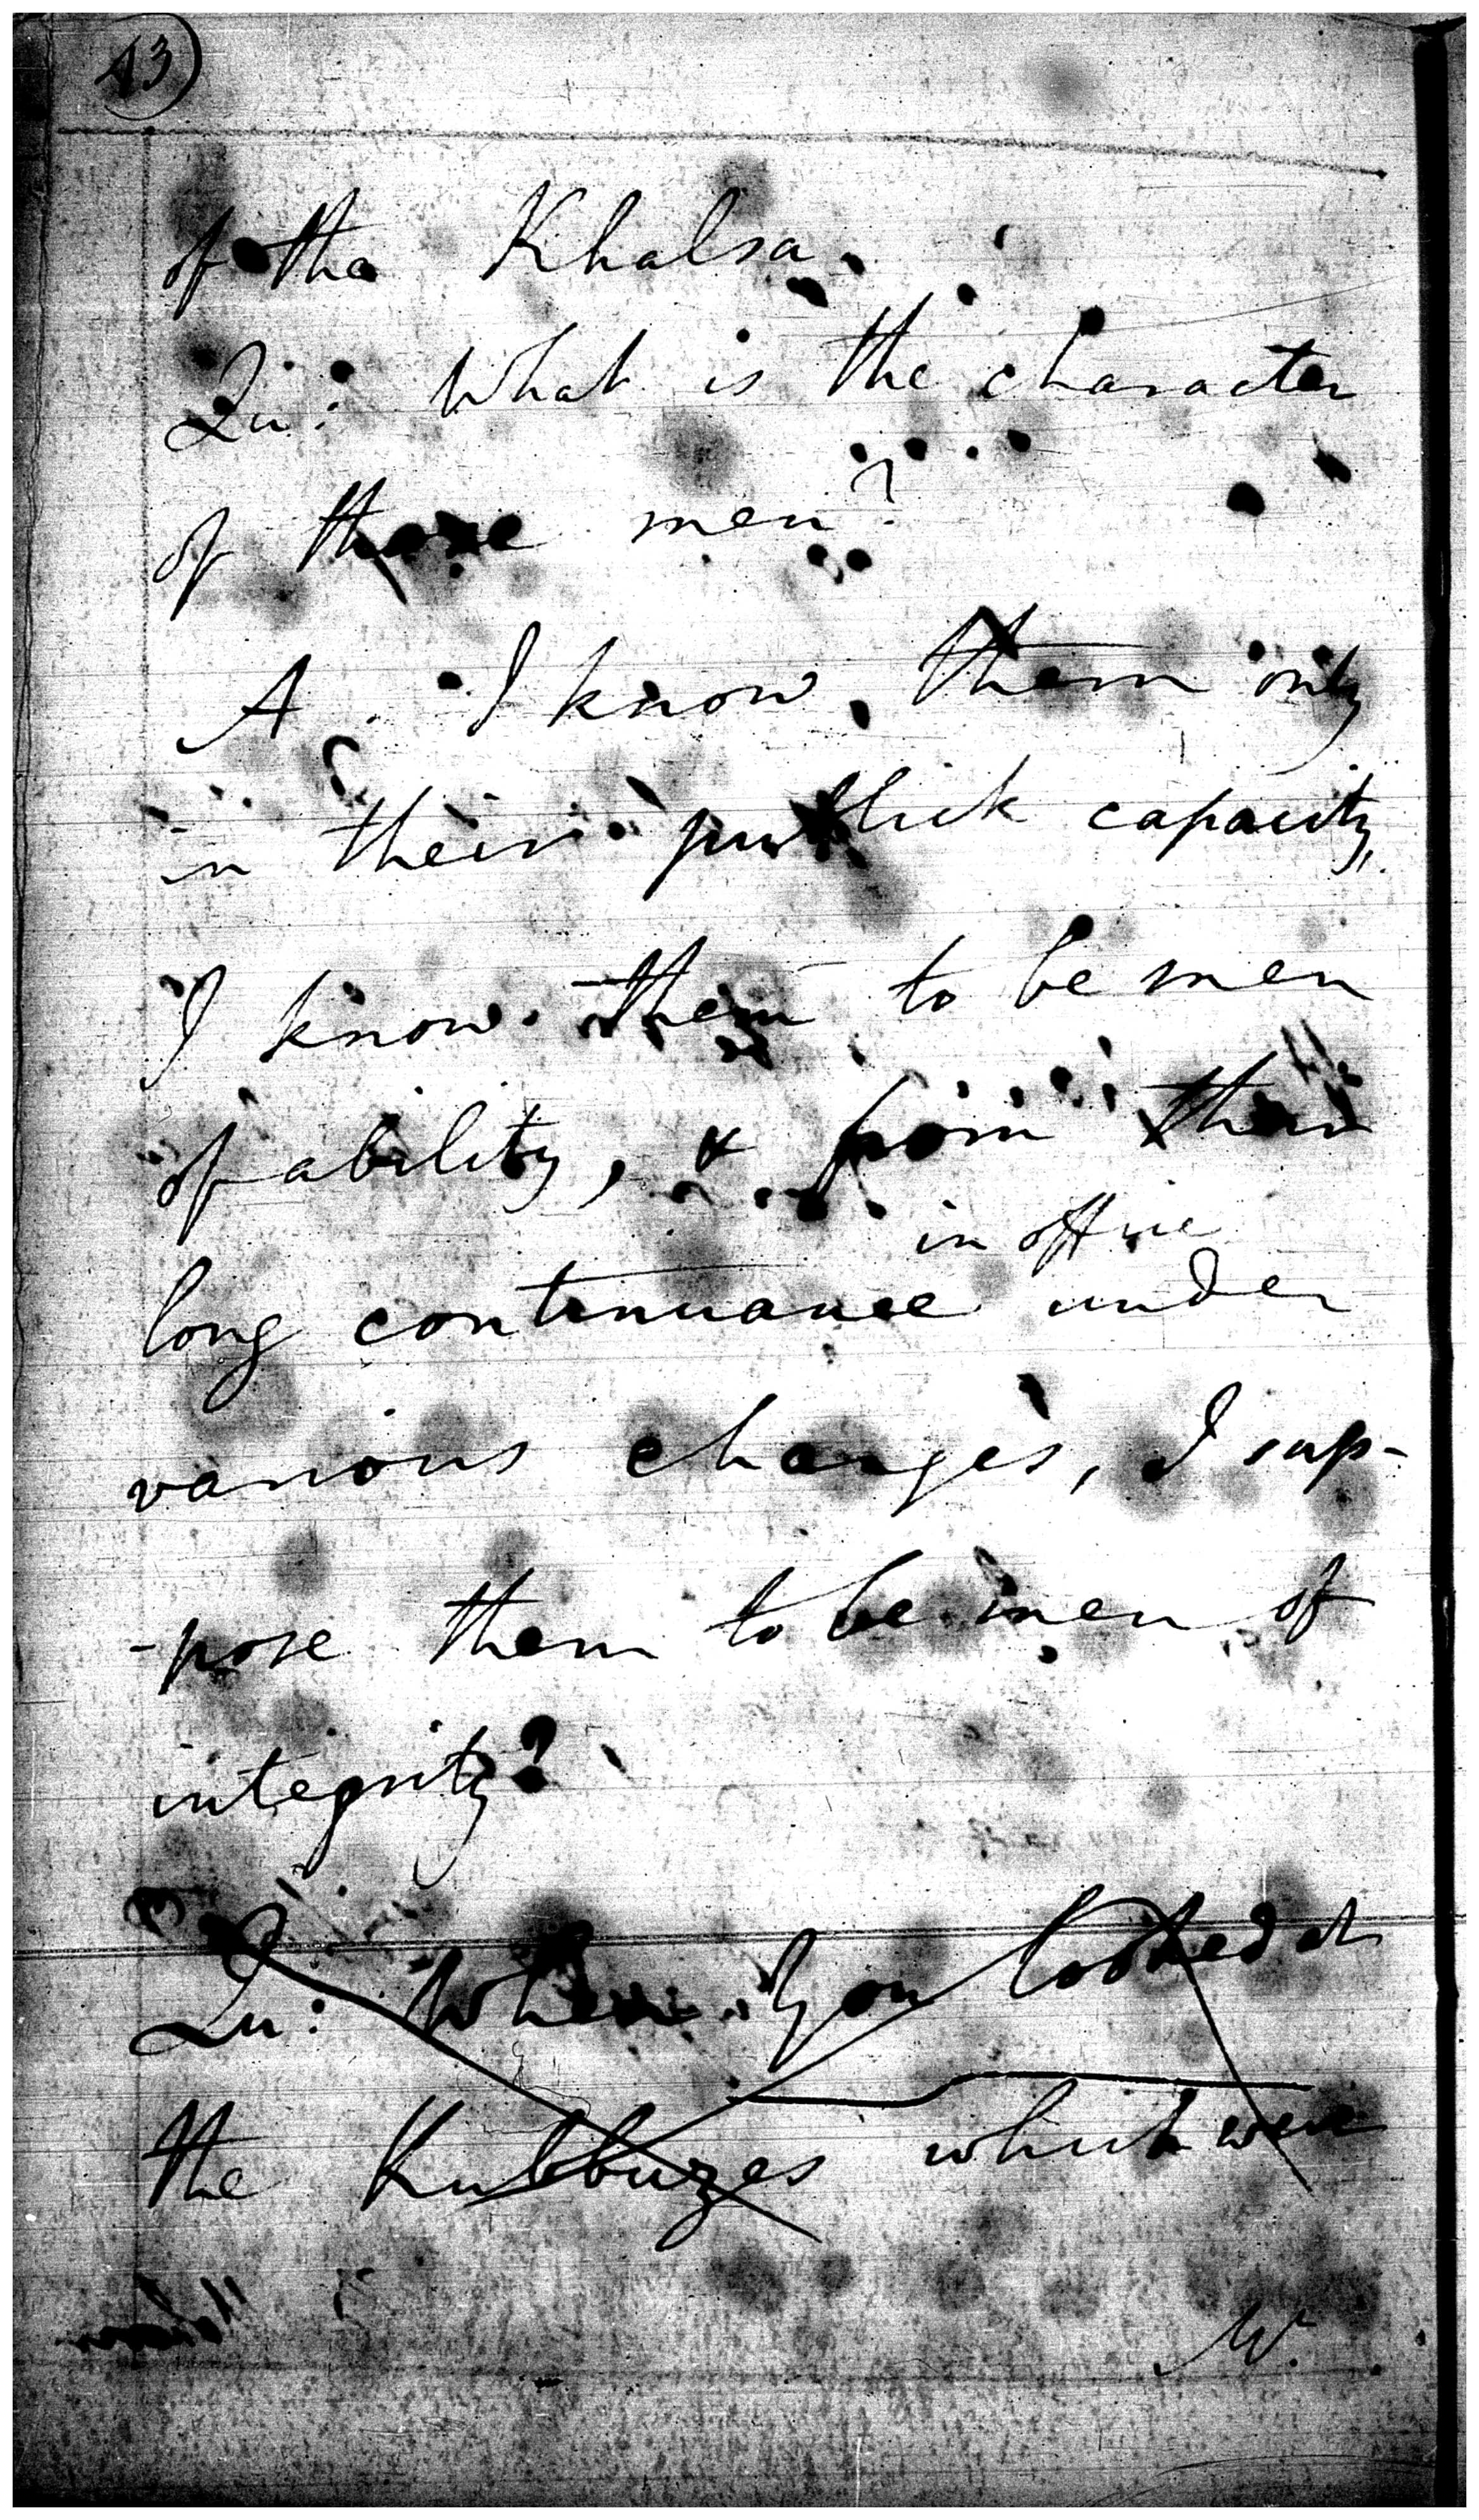 43
of the Khalsa.
Qu: What is the character
of those men?
A. I know them only
in their publick capacity,
I know them to be men
of ability, & from their
in office
long continuance under
various changes, I sup-
-pose them to be men of
integrity?
Qu: When you looked at
the Kubbuzes which were
W.